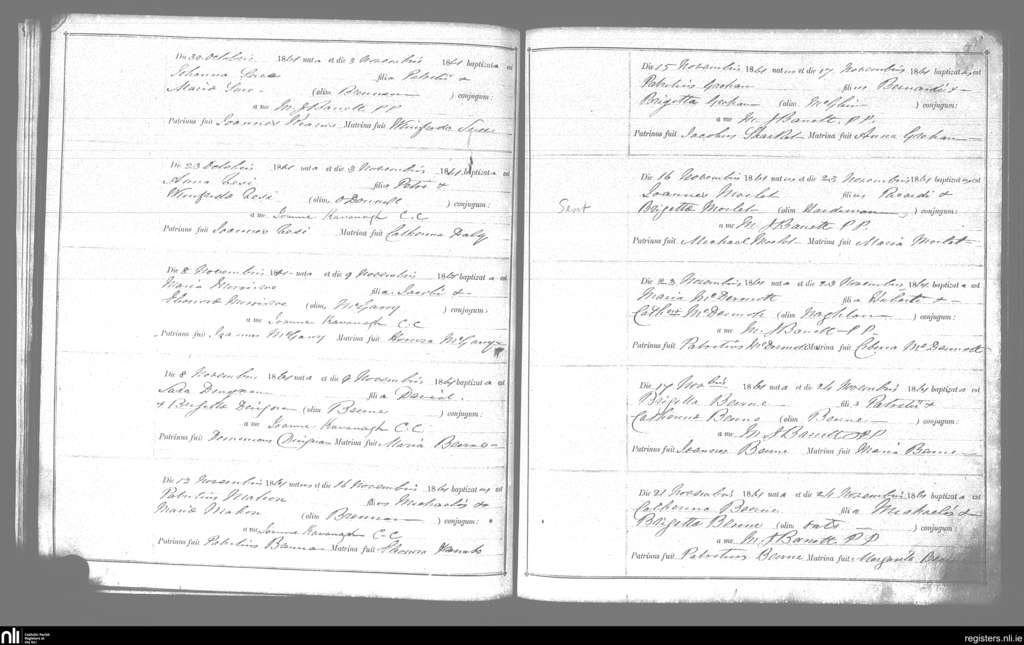 Die 30 Octobris 1861 nata et die 3 Novembris 1861 baptizata est
Johanna
filia Patritii &
Maria (olim Brennan ) conjugum:
a me M. J Barrett P P
Patrinus fuit Joannes Matrina fuit Winifrida
Die 23 Octobris 1861 nata et die 3 Novembris 1861 baptizata est
Anna
filia Petri &
Winifrida (olim O Donnell ) conjugum:
a me Joanne Kavanagh C.C
Patrinus fuit Joannes Matrina fuit Catherina Daly
Die 8 Novembris 186 nata et die 9 Novembris 1861 baptizata est
Maria
filia Jacobi &
(olim McGarry ) conjugum:
a me Joanne Kavanagh C.C
Patrinus fuit McGarry Matrina fuit Honora McGarry
Die 8 Novembris 1861 nata et die 9 Novembris 1861 baptizata est
Sara Duignan
filia Daniel.
& Brigitta Duignan (olim Beirne ) conjugum:
a me Joanne Kavanagh C.C.
Patrinus fuit Duignan Matrina fuit Maria Bearne
Die 12 Novembris 1861 natus et die 16 Novembris 1861 baptizatus est
Patritius Mahon
filius Michaelis &
Maria Mahon (olim Brennan ) conjugum:
a me Joanne Kavanagh C.C
Patrinus fuit Patritius Matrina fuit Honora
Die 15 Novembris 1861 natus et die 17 Novembris 1861 baptizatus est
Patritius Grehan
filius Bernardi &
Brigitta Grehan (olim McGlin ) conjugum:
a me M. J Barrett. P P.
Patrinus fuit Jacobus Sharket Matrina fuit Anna Grehan
Sent
Die 16 Novembris 1861 natus et die 23 Novembris 1861 baptizatus est
Joannes Morlet
filius &
Brigitta Morlet (olim Hardeman ) conjugum:
a me M. J Barrett P P.
Patrinus fuit Michael Morlet Matrina fuit Maria Morlet
Die 23 Novembris 1861 nata et die 23 Novembris 1861 baptizata est
Maria McDermott
filia Huberti &
Cathne McDermott (olim Naghten ) conjugum:
a me M. J Barrett P P.
Patrinus fuit Patritius McDermott Matrina fuit McDermott
Die 17 Novbris 1861 nata et die 24 Novembris 1861 baptizata est
Brigitta Beirne
filia Patritii &
Catherina Beirne (olim Beirne ) conjugum:
a me M. J Barrett P P
Patrinus fuit Joannes Beirne Matrina fuit Maria Beirne
Die 21 Novembris 1861 nata et die 24 Novembris 1861 baptizata est
Catherina Beirne
filia Michaelis &
Brigitta Beirne (olim Oats ) conjugum:
a me M. J Barrett P P
Patrinus fuit Patritius Beirne Matrina fuit Margarita Beirne
nli Catholic Parish
Registers at
the NLI
registers.nli.ie